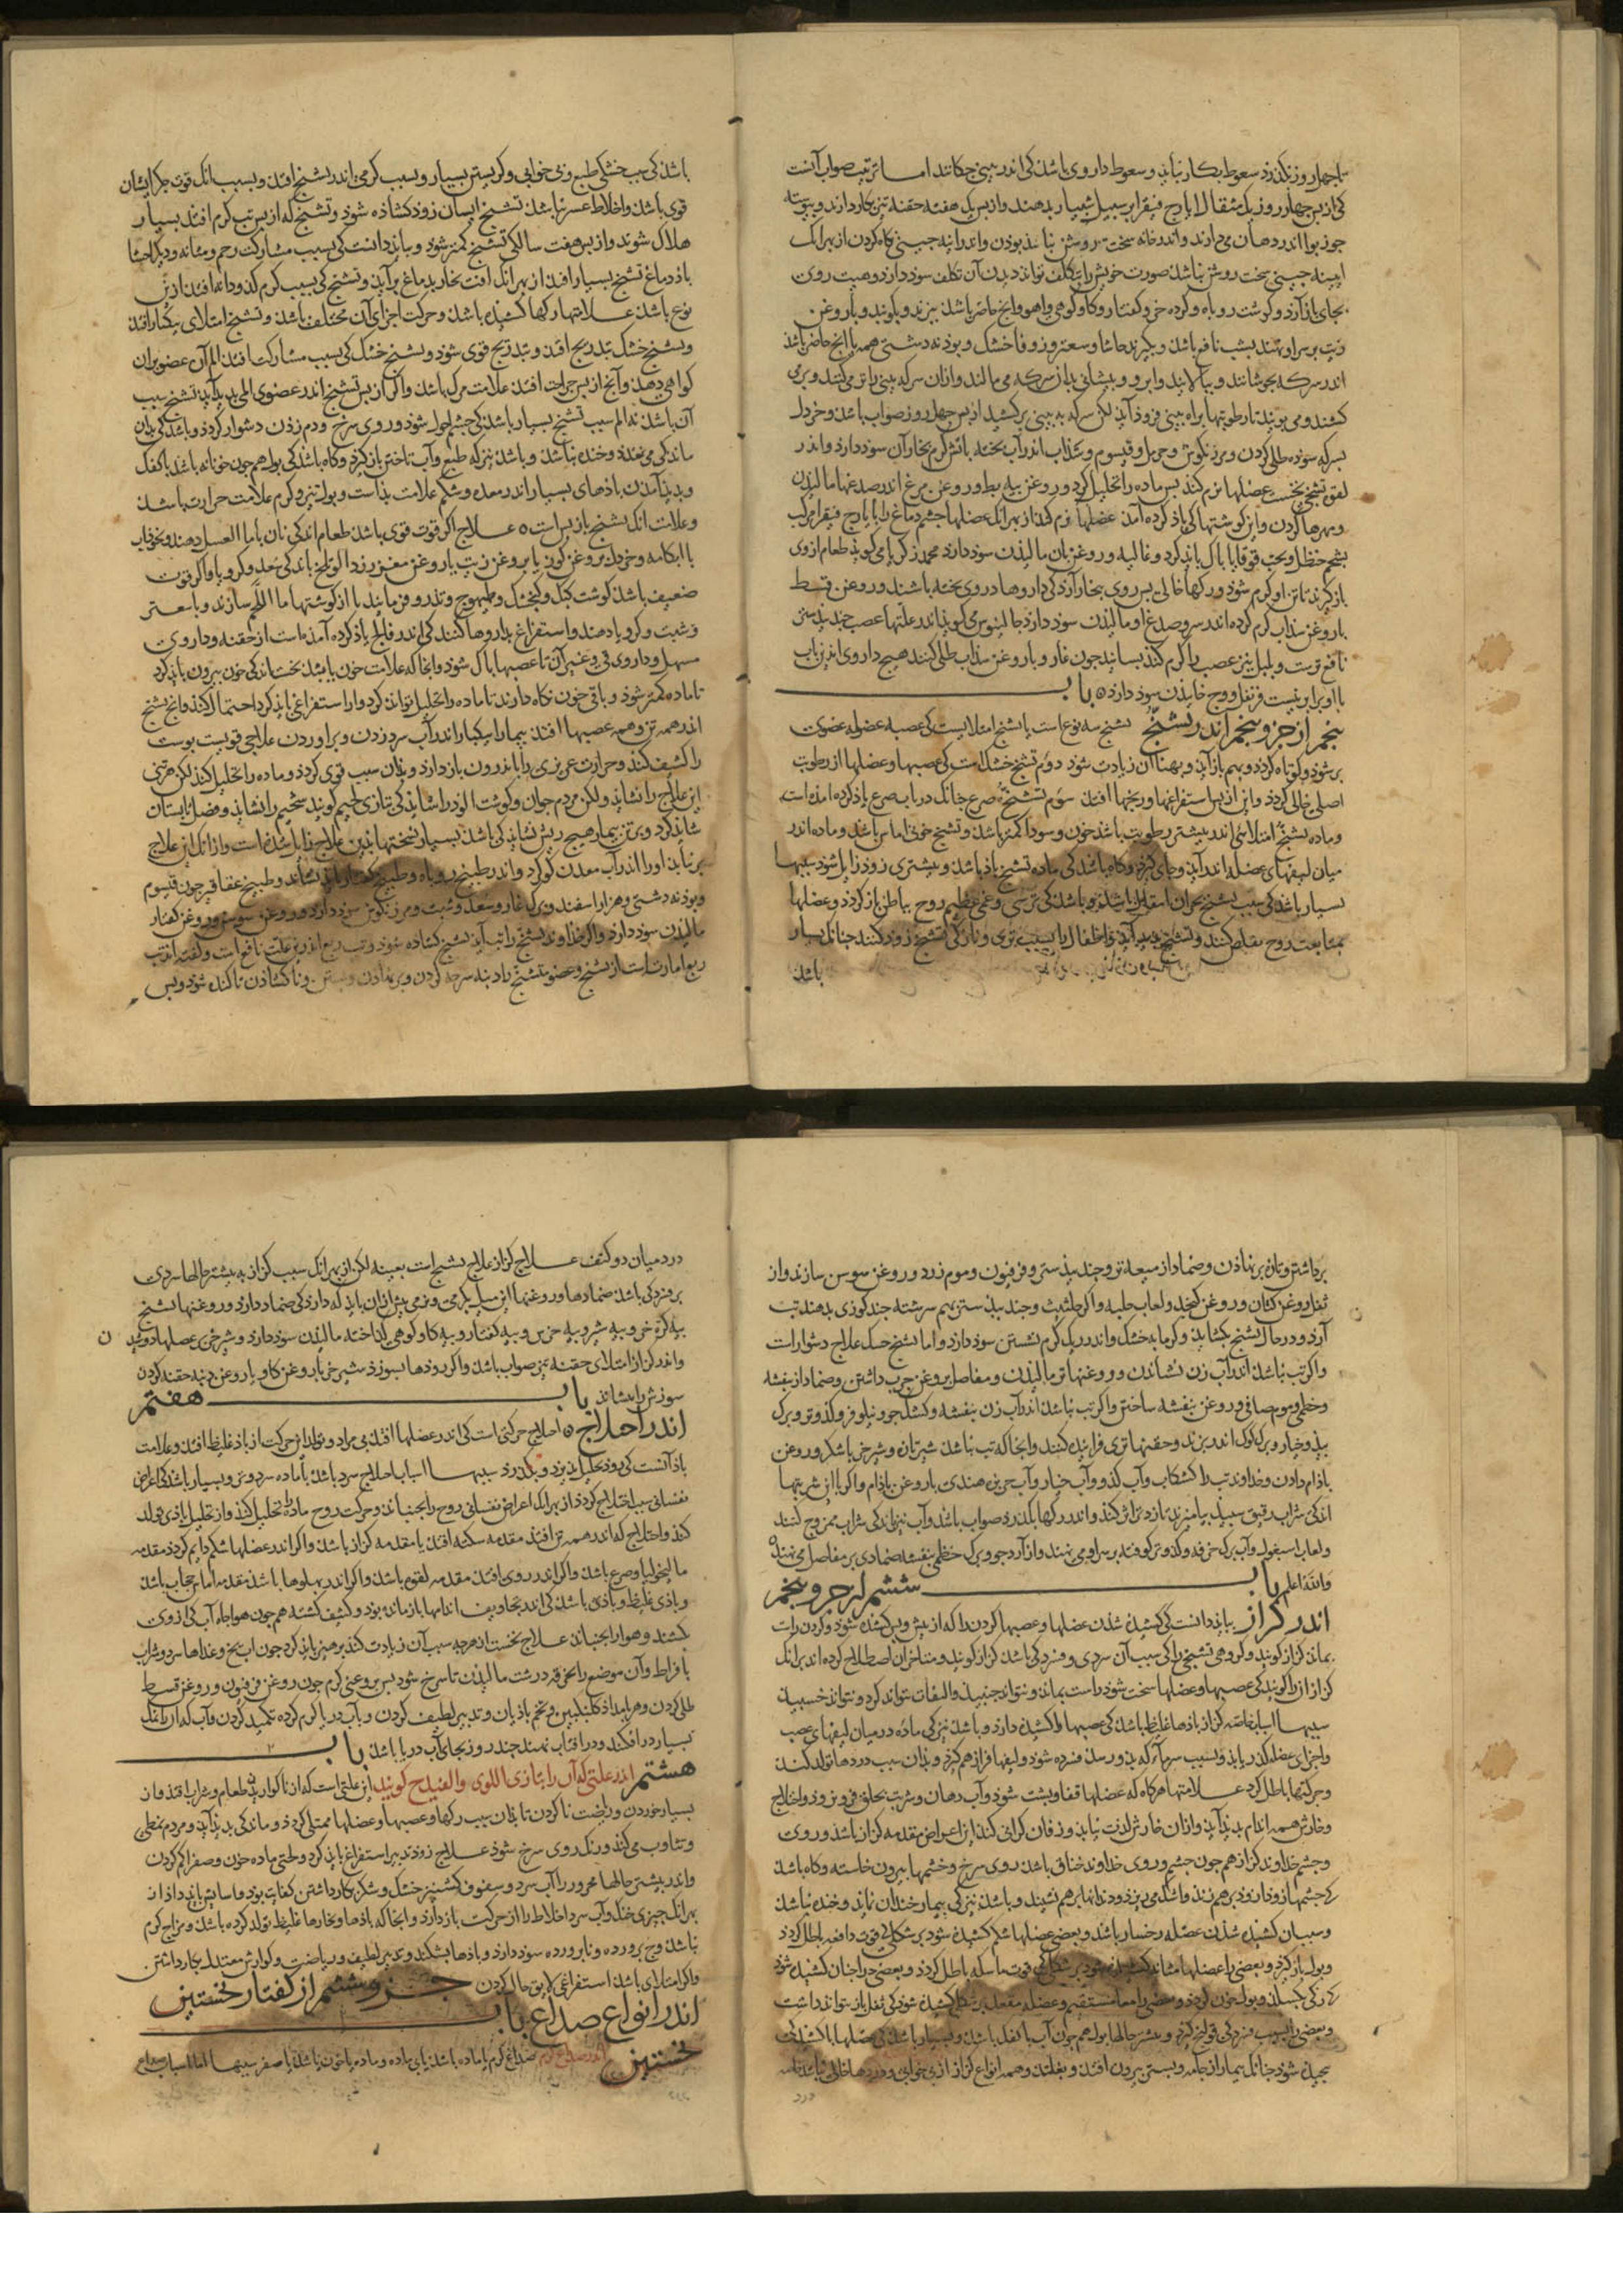 تا چهل روز نکذرذ سعوط بکار نیاید و سعوط داروی باشذ کی اندر بینی چکانند اما ترتیب صواب آنست
کی از بس چهار روز یک مثقال ایارج فیقرا بر سبیل شبیار بدهند و از بس یک هفته حقنه تیز بکار دارند و پیوسته
جوز بوا اندر دهان می دارند و اندر خانه سخت روشن نباید بوذن و اندر آینه چینی نکاه کردن از بهر آنک
آیینه چینی سخت روشن نباشذ صورت خویش را بتکلف تواند دیذن آن تکلف سوذ دارذ
بجای باز آرذ و کوشت روباه و کرده خر و کفتار و کاو کوهی و آهو و آنچ حاضر باشذ ببزند و بکوبند و با روغن
زیت بر سر او نهند بشب نافع باشذ و بکیرند حاشا و سعتر و زوفا خشک و بوذنه دشتی همه یا آنچ حاضر باشذ
اندر سرکه بجوشانند و ببالایند و ابرو و بیشانی بذان سرکه می مالند و ازان سرکه ببینی برتر می کشند و بر می
کشند و می بویند تا رطوبتها براه بینی فروذ آید لکن سرکه به بینی بر کشید از بس چهل روز صواب باشذ و خردل
بسرکه سوده طلی کردن و مرزنکوش و حرمل و قیسوم و سذاب اندر آب بخته بآتش کرم بخار آن سوذ دارذ و اندر
لقوه تشنجی نخست عضلها نرم کنند بس ماده را تحلیل کرد و روغن بیه بط و روغن مرغ اندر صدغها مالیذن
و مهرها کردن و این کوشتها کی یاذ کرده آمذ عضلها نرم کند از بهر آنک عضلها جشم دماغ را بایارج فیقرا مرکب
بشحم حنظل و بحب قوقایا باک باید کرد و غالیه و روغن بان مالیذن سوذ دارذ محمد زکریا می کوید طعام از وی
باز کیرند تا تن او کرم شوذ و رکها خالی بس روی ببخار آرذ کی داروها در وی بخته باشند و روغن قسط
با روغن سذاب کرم کرده اندر سر و صدغ او مالیذن سوذ دارذ جالینوس می کوید اندر علتها عصب جند بیدستر
نافع ترست و بلبل نیز عصب را کرم کند بسایند چون غار و با روغن سذاب طلی کنند هیچ داروی اندرین باب
با او برابر نیست قرنفل و وج خاییذن سوذ دارذ ٥ باب
بنجم از جزو بنجم اندر تشنج تشنج سه نوع است یا تشنج امتلایست کی عصبه عضوله عضوکت
بر شوذ و کوتاه کردذ و بهم باز آیذ و بهنا آن زیادت شوذ دوم تشنج خشک است کی عصبها و عضلها از رطوبت
اصلی خالی کردذ و این از بس استفراغها و رنجها افتذ سوم تشنج صرع چنانک در باب صرع یاذ کرده آمذه است
و ماده تشنج امتلائی اندر بیشتر رطوبت باشذ خون و سوذا کمتر باشذ و تشنج خونی آماس باشذ و ماده اندر
میان لیفهای عضله اندر آیذ و جای کیرذ و کاه باشذ کی ماده تشنج باذ باشذ و بیشتری زوذ زایل شوذ سببها
بسیار باشذ کی سبب تشنج بحران انتقالی باشذ و باشذ کی ترسی و غمی عظیم روح بباطن باز کردذ و عضلها
بمتابعت روح تقلص کنند و تشنج بدید آید و اطفال را بسبب تری و نازکی تشنج زوذ کنند چنانک بسیار
باشذ
باشذ کی بسبب خشکی طبع و بی خوابی و کریستن بسیار و بسبب کرمی اندر تشنج افتذ و بسبب آنک قوت جکر ایشان
قوی باشذ و اخلاط عسر نباشذ تشنج ایشان زوذ کشاذه شوذ و تشنج که از بس تب کرم افتذ بسیار
هلاک شوند و از بس هفت سالکی تشنج کمتر شوذ و بباید دانست کی بسبب مشارکت رحم و مثانه و دیکر احشا
باذ دماغ تشنج بسیار افتذ از بهر آنک آفت بخار بدماغ برآیذ و تشنج کی بسبب کرم کدو دانه افتذ ازین
نوع باشذ علامتها رکها کشیذه باشذ و حرکت اجزای آن مختلف باشذ و تشنج امتلای یکبار افتذ
و تشنج خشک بتدریج افتذ و بتدریج قوی شوذ و تشنج خشک کی بسبب مشارکت افتذ الم آن عضو بران
کواهی دهذ و آنچ از بس جراحت افتذ علامت مرک باشذ و اکر از بس تشنج اندر عضوی المی بدید آید تشنج سبب
آن باشذ نه الم سبب تشنج بسیار باشذ کی جشم احول شوذ و روی سرخ و دم زذن دشوار کردذ و باشذ کی بدان
ماند کی می خندذ و خنده نباشذ و باشذ نیز که طبع و آب تاختن باز کیرذ و کاه باشذ کی بول همچون خونابه باشذ با کفک
و بدید آمذن باذهای بسیار اندر معده و شکم علامت بذ است و بول تیز و کرم علامت حرارت باشذ
و علامت آنک تشنج باز بس است ٥ علاج اکر قوت قوی باشذ طعام اندکی نان با ما العسل دهند و نخوذآب
با آبکامه و خردل و روغن کوز یا روغن زیت یا روغن مغز زردآلو تلخ با اندکی سعد و کرویا و اکر قوت
ضعیف باشذ کوشت کبک و کنجشک و طیهوج و تذرو فرمایند یا از کوشتها ما اللحم سازند و با سعتر
و شبت و کرویا دهند و استفراغ بداروها کنند کی اندر فالج یاذ کرده آمذه است از حقنه و داروی
مسهل و داروی قی و غیر آن تا عصبها باک شوذ و آنجا که علامت خون باشذ نخست اندکی خون بیرون باید کرد
تا ماده کمتر شوذ و باقی خون نکاه دارند تا ماده را تحلیل تواند کرد و از استفراغی باید کرد احتمال کند و آنچ تشنج
اندر همه تن و همه عصبها افتذ بیمار را یکبار اندر آب سرد زدن و برآوردن علاجی قویست بوست
را کثیف کند و حرارت غریزی را باندرون باز دارد و بذان سبب قوی کردذ و ماده را تحلیل کند لکن هر تنی
این علاج را نشاید ولکن مردم جوان و کوشت آلوذ را شاید کی بتازی لحیم کویند شحیم را نشاید و فصل تابستان
شاید کرد و بر تن بیمار هیچ ریش نشاید کی باشذ بسیار تشنجها بذین علاج زایل شذه است و از آنک این علاج
بر نیاید او را اندر آب معدن کوکرد و اندر طبیخ روباه و طبیخ کفتار باید نشاند و طبیخ عقاقیر چون قیسوم
و بوذنه دشتی و هزار اسفند و برک غار و سعد و شبت و مرزنکوش سوذ دارذ و روغن سوسن و روغن کفتار
مالیذن سوذ دارذ و اکر خذاوند تشنج را تب آید تشنج کشاده شوذ و تب ربع اندرین علت نافع است و کفته اند تب
ربع امارت است از تشنج و عضو متشنج را دبه سرجه کردن و بر نهاذن و بستن و ناکشاذن تا کنده شوذ و بس
برداشتن و تان بر نهاذن و ضماد از میعه تر و جند بیدستر و فرفیون و موم زرد و روغن سوسن سازند و از
ثفل و روغن کتان و روغن کنجد و لعاب حلبه و اکر حلتیت و جند بیدستر بهم سرشته چند کوزی بدهند تب
آرذ و در حال تشنج بکشاید و کرمابه خشک و اندر ریک کرم نشستن سوذ دارذ و اما تشنج خشک علاج دشوار است
و اکر تب نباشذ اندر آب زن نشاندن و روغنها تر مالیذن و مفاصل بروغن چرب داشتن و ضماد از بنفشه
و خطمی و موم صافی و روغن بنفشه ساختن و اکر تب نباشذ اندر آب زن بنفشه و کشک جو و نیلوفر و کدو تر و برک
بید و خیار و برک کوک اندر بزند و حقنها تری فزاینده کنند و آنجا که تب نباشذ شیر تازه و شیر خر با شکر و روغن
باذام دادن و خذاوند تب را کشکاب و آب کدو و آب خیار و آب خربزه هندی با روغن باذام و اکر با این شربتها
اندکی شراب رقیق سبید بیامیزند تا زود تراش کند و اندر رکها بکذرذ صواب باشذ و آب نیز با اندکی شراب ممزوج کنند
و لعاب اسبغول و آب برک خرفه و کدو تر کوفته بر سر او می نهند و از آرد جو و برک خطمی بنفشه ضمادی بر مفاصل می نهند ٥
والله اعلم باب ششم از جزو بنجم
اندر کزاز بباید دانست کی کشیذه شذن عضلها و عصبها کردن را که از پیش و بس کشیذه شوذ و کردن راست
بماند کزاز کویند و کروهی تشنجی را کی سبب آن سردی و فسردکی باشذ کزاز کویند و متاخران اصطلاح کرده اند بر آنک
کزاز آن را کویند کی عصبها و عضلها سخت شوذ راست بماند و نتواند جنبید و التفات نتواند کرد و نتواند خسبید
سببها اسباب خاصه کزاز باذها غلیظ باشذ کی عصبها را کشیده دارد و باشذ نیز کی ماده در میان لیفهای عصب
و اجزای عضله اندر یابذ و بسبب سرما که بذو رسذ فسرده شوذ و لیفها فراز هم کیرذ و بذان سبب دردها تولد کند
و حرکتها باطل کرد علامتها هرکاه که عضلها قفا و بشت شوذ و آب دهان و شربت بحلق فرو نروذ و اختلاج
و خارش همه اندام بدید آید و ازان خارش لذت نیابذ و زفان کرانی کند این اعراض مقدمه کزاز باشذ و روی
و جشم خذاوند کزاز همچون جشم و روی خذاوند خناق باشذ روی سرخ و جشمها بیرون خاسته و کاه باشذ
کی جشمها زوذ ازوذ بر هم زند و اشک می ریزذ و دندانها بر هم نشیند و باشذ نیز کی بیمار خندان نماید و خنده نباشذ
و سبب آن کشیذه شذن عضله رخسار باشذ و بعضی عضلها شکم کشیذه شوذ بر شکلی کی قوت دافعه باطل کردذ
و بول باز کیرذ و بعضی را عضلها مثانه کشیذه شوذ بر شکلی کی قوت ماسکه باطل کردذ و بعضی را چنان کشیده شوذ
کی رکی بکسلذ و بول خون کردذ و بعضی را معا مستقیم و عضله مقعد بر شکلی کشیذه شوذ کی ثفل باز نتواند داشت
و بعضی را بسبب فسردکی قولنج کیرذ و بیشتر حالها بول همچون آب با کفک باشذ و بسیار باشذ کی عضلها با کشیذکی
بیجیذه شوذ چنانک بیمار از جامه و بستر بیرون افتذ و بغلتد و همه انواع کزاز از بی خوابی و دردها خالی نباشذ خاصه
درد
درد میان دو کتف علاج کزاز علاج تشنج است بعینه لکن از بهر آنک سبب کزاز به بیشتر حالها سردی
بر فسردکی باشذ ضمادها و روغنها این سبیل بکرمی و نرمی بیش ازان باید که دارذ کی ضماد دارد و روغنها تشنج
بیه کرده خر و بیه شیر و بیه خرس و بیه کفتار و بیه کاو کوهی کذاخته مالیذن سوذ دارذ و شیر خر بر عضلها دوشید
و اندر کزاز امتلای حقنه تیز صواب باشذ و اکر روذها بسوزذ شیر خر با روغن کاو یا روغن دنبه حقنه کردن
سوزش را بنشاند باب هفتم
اندر اختلاج ٥ اختلاج حرکتی است کی اندر عضلها افتذ بی مراد و تولد این حرکت از باذ غلیظ افتذ و علامت
باذ آنست کی زوذ تحلیل پذیرد و بکذرد سببها اسباب اختلاج سرد باشذ یا ماده سرد و تر و بسیار باشذ کی اعراض
نفسانی سبب اختلاج کردذ از بهر آنک اعراض نفسانی روح را بجنباند و حرکت روح ماده را تحلیل کند و از تحلیل باذی تولد
کند و اختلاج که اندر همه تن افتذ مقدمه سکته افتذ یا مقدمه کزاز باشذ و اکر اندر عضلها شکم دایم کردذ مقدمه
مالیخولیا و صرع باشذ و اکر اندر روی افتذ مقدمه لقوه باشذ و اکر اندر بهلوها باشذ مقدمه آماس حجاب باشذ
و باذی غلیظ و باذی باشذ کی اندر تجاویف اندامها باز مانده بوذ و کثیف کشته همچون هوا چاه آب کی از وی
بکشند و هوا را بجنباند علاج نخست از هرچه سبب آن زیادت کند برهیز باید کرد چون آب یخ و غذاها سرد و شراب
بافراط و آن موضع را بخرقه درشت مالیذن تا سرخ شوذ بس بروغنی کرم چون روغن فرفیون و روغن قسط
طلی کردن و هر بامداد کلنکبین و تخم باذیان و تدبیر لطیف کردن و بآب دریا کرم کرده تکمید کردن و آب که آن را نمک
بسیار در افکند و در آفتاب نهند چند روز بجای آب دریا باشذ باب
هشتم اندر علتی که آن را بتازی اللوی والفنیدج کویند این علتی است که از ناکوارید طعام و شراب افتذ و از
بسیار خوردن و ریاضت نا کردن تا بذان سبب رکها و عصبها و عضلها ممتلی کردذ و ماندکی بدید آید و مردم تمطی
و تثاوب می کند و رنک روی سرخ شوذ علاج زوذ تدبیر استفراغ باید کرد و لختی ماده خون و صفرا کم کردن
و اندر بیشتر حالها محرور را آب سرد و سفوف کشنیز خشک و شکر بکار داشتن کفایت بود و اسایش باید داد از
بهر آنک چیزی خنک و آب سرد اخلاط را از حرکت باز دارد و آنجا که باذها و بخارها غلیظ تولد کرده باشذ و مزاج کرم
نباشذ وج برورده و نابرورده سوذ دارذ و باذها بشکند و تدبیر لطیف و ریاضت و کوارش معتدل بکار داشتن
و اکر امتلای باشذ استفراغی لایق حال کردن جزو ششم از کفتار نخستین
اندر انواع صداع باب
نخستین اندر صداع کرم صداع کرم یا ماده باشذ یا بی ماده و ماده یا خون باشذ یا صفرا سببها اما اسباب صداع